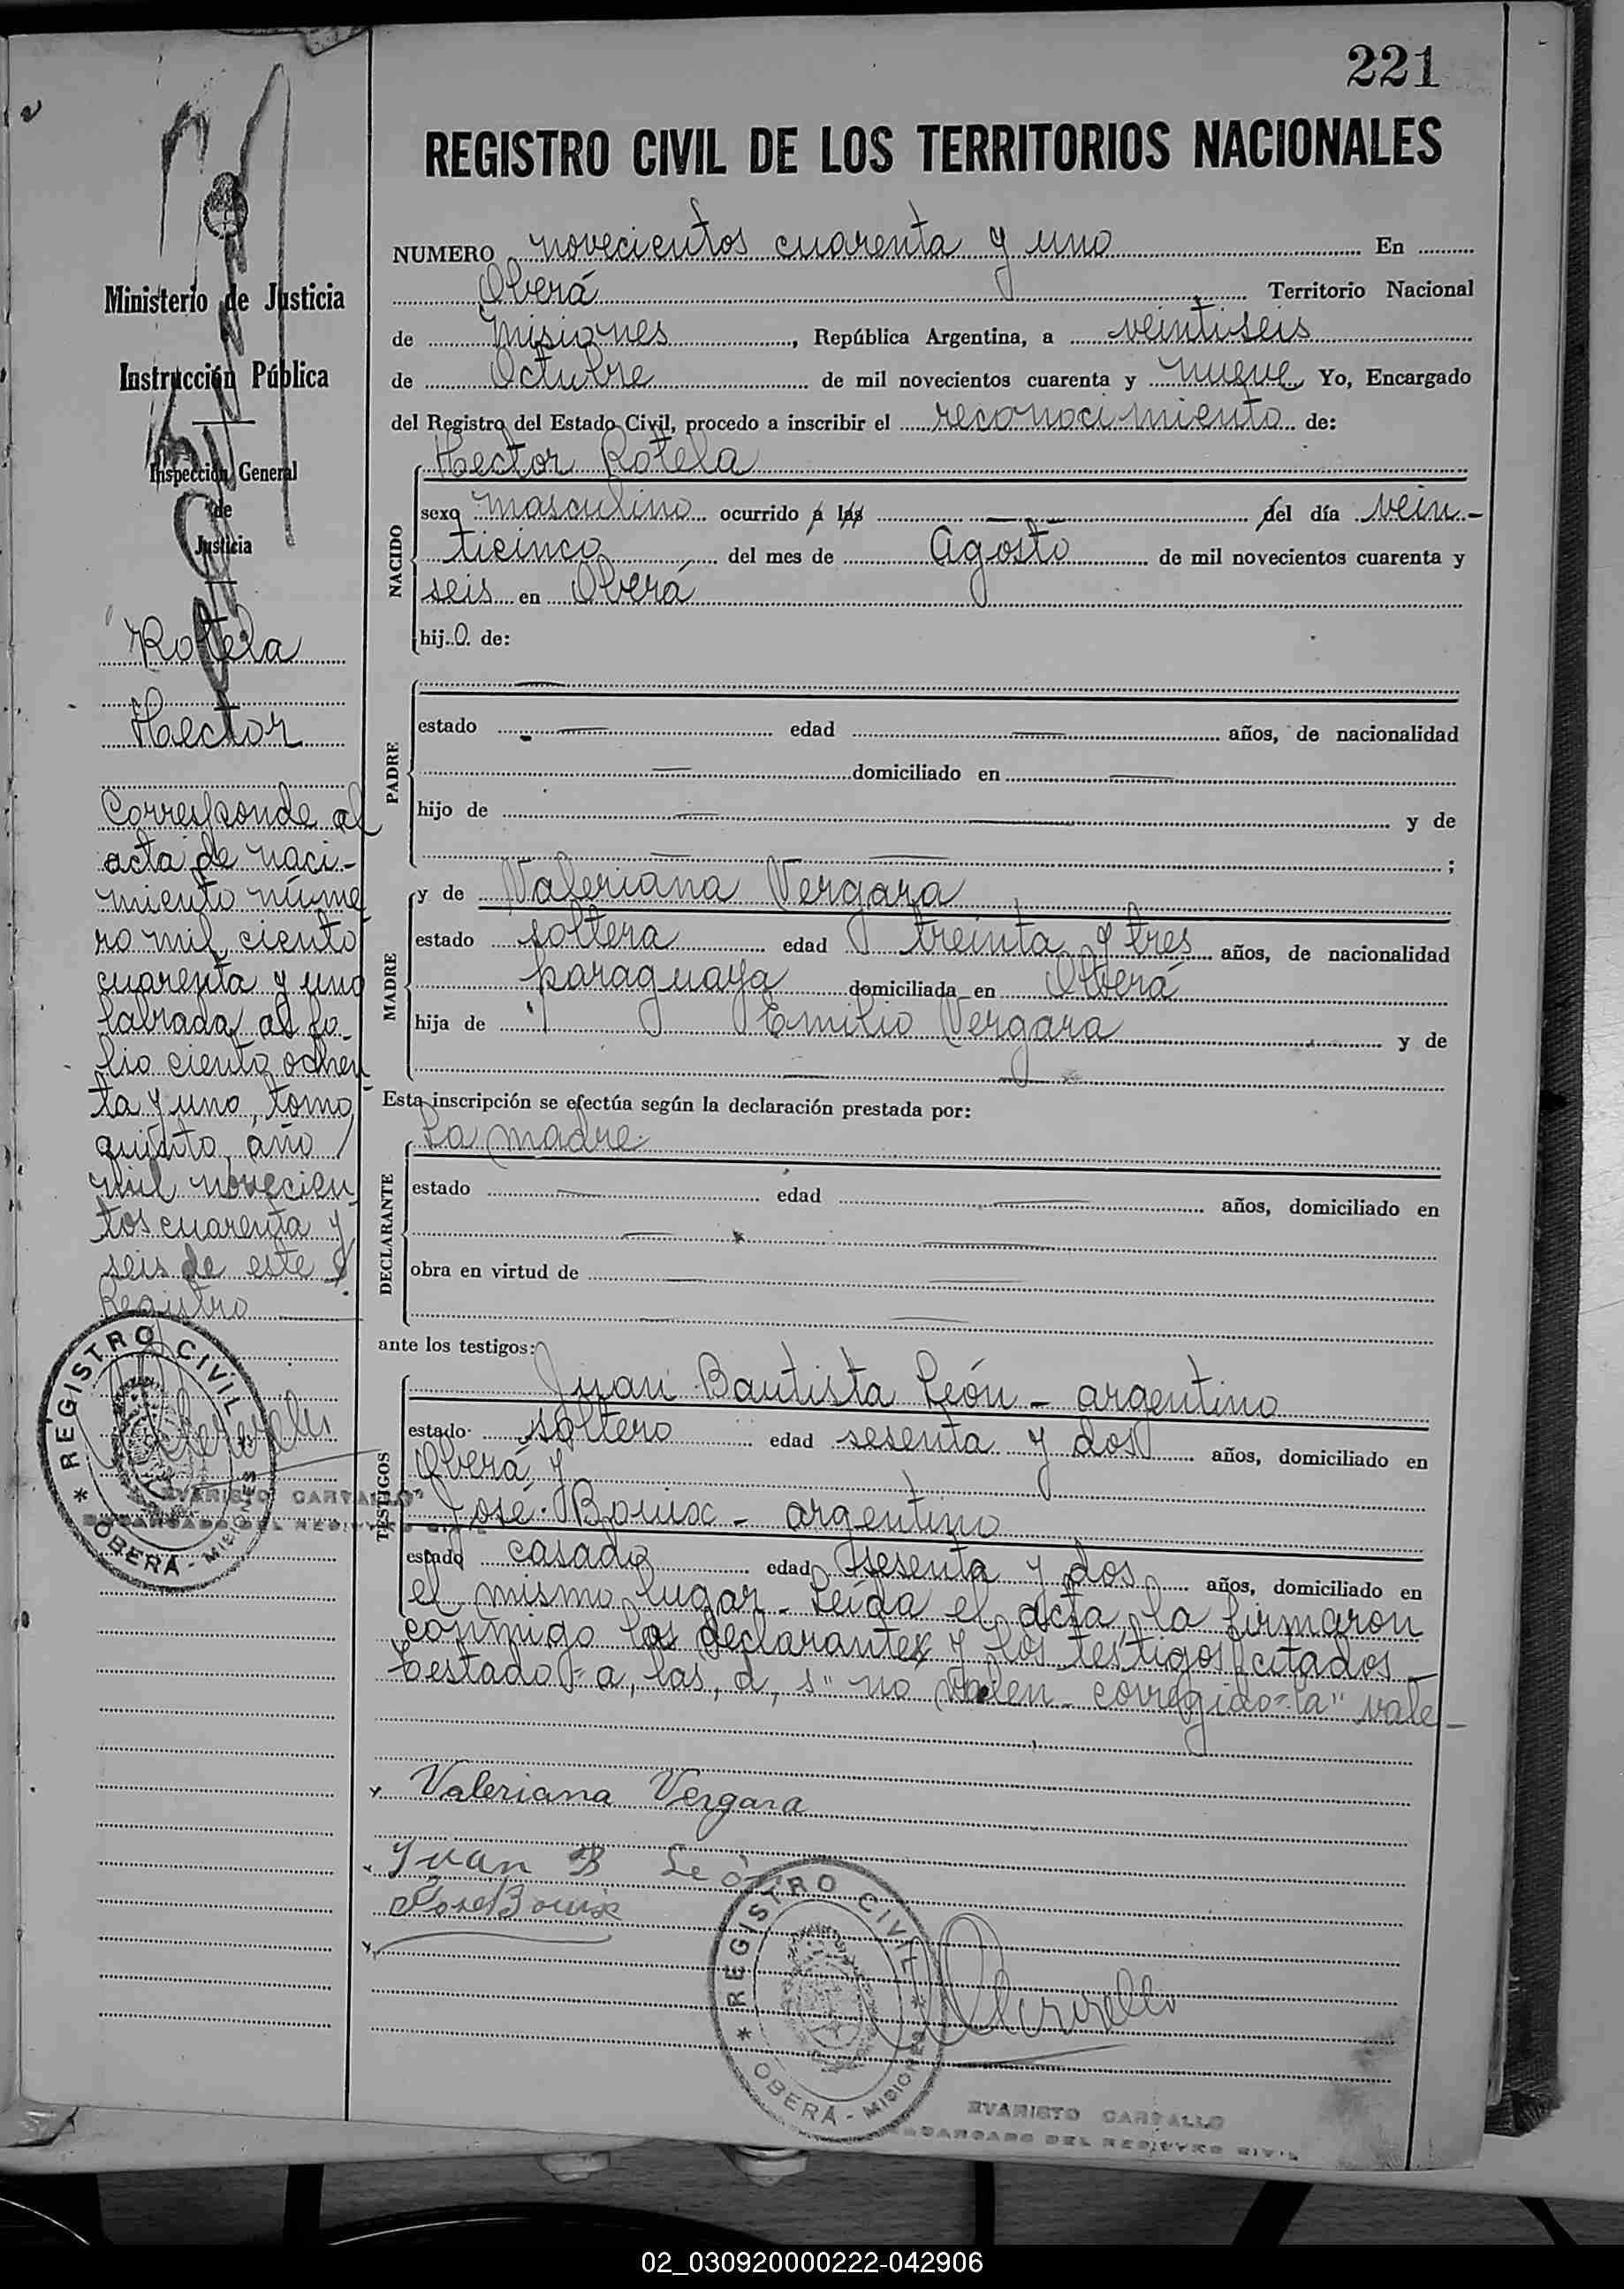 221
REGISTRO CIVIL DE LOS TERRITORIOS NACIONALES
Ministerio de Justicia
Instrucción Pública
Inspección General
de
Justicia
Rotela
Hector
Corresponde al
acta de naci-
miento núme
ro mil ciento
cuarenta y uno
labrada al fo-
lio ciento ochen
ta y uno, tomo
quinto, año
mil novecien
tos cuarenta y
seis de este
Registro
REGISTRO CIVIL
OBERÁ - MISIONES
EVARISTO CARVALLO
ENCARGADO DEL REGISTRO CIVIL
NUMERO novecientos cuarenta y uno En
Oberá Territorio Nacional
de Misiones, República Argentina, a veintiseis
de Octubre de mil novecientos cuarenta y nueve Yo, Encargado
del Registro del Estado Civil, procedo a inscribir el reconocimiento de:
Hector Rotela
NACIDO
sexo masculino ocurrido a las del día vein-
ticinco del mes de Agosto de mil novecientos cuarenta y
seis en Oberá
hijo de:
PADRE
estado edad años, de nacionalidad
domiciliado en
hijo de y de
;
MADRE
y de Valeriana Vergara
estado soltera edad treinta y tres años, de nacionalidad
paraguaya domiciliada en Oberá
hija de Emilio Vergara y de
Esta inscripción se efectúa según la declaración prestada por:
La madre
DECLARANTE
estado edad años, domiciliado en
obra en virtud de
ante los testigos:
TESTIGOS
Juan Bautista León - argentino
estado soltero edad sesenta y dos años, domiciliado en
Oberá y
José Bouix - argentino
estado casado edad sesenta y dos años, domiciliado en
el mismo lugar - Leída el acta, la firmaron
conmigo la declarante y los testigos citados -
Testado = a, las, d, s" no valen - corregido = la" vale -
Valeriana Vergara
Juan B León
Jose Bouix
REGISTRO CIVIL
OBERÁ - MISIONES
EVARISTO CARVALLO
ENCARGADO DEL REGISTRO CIVIL
02_030920000222-042906